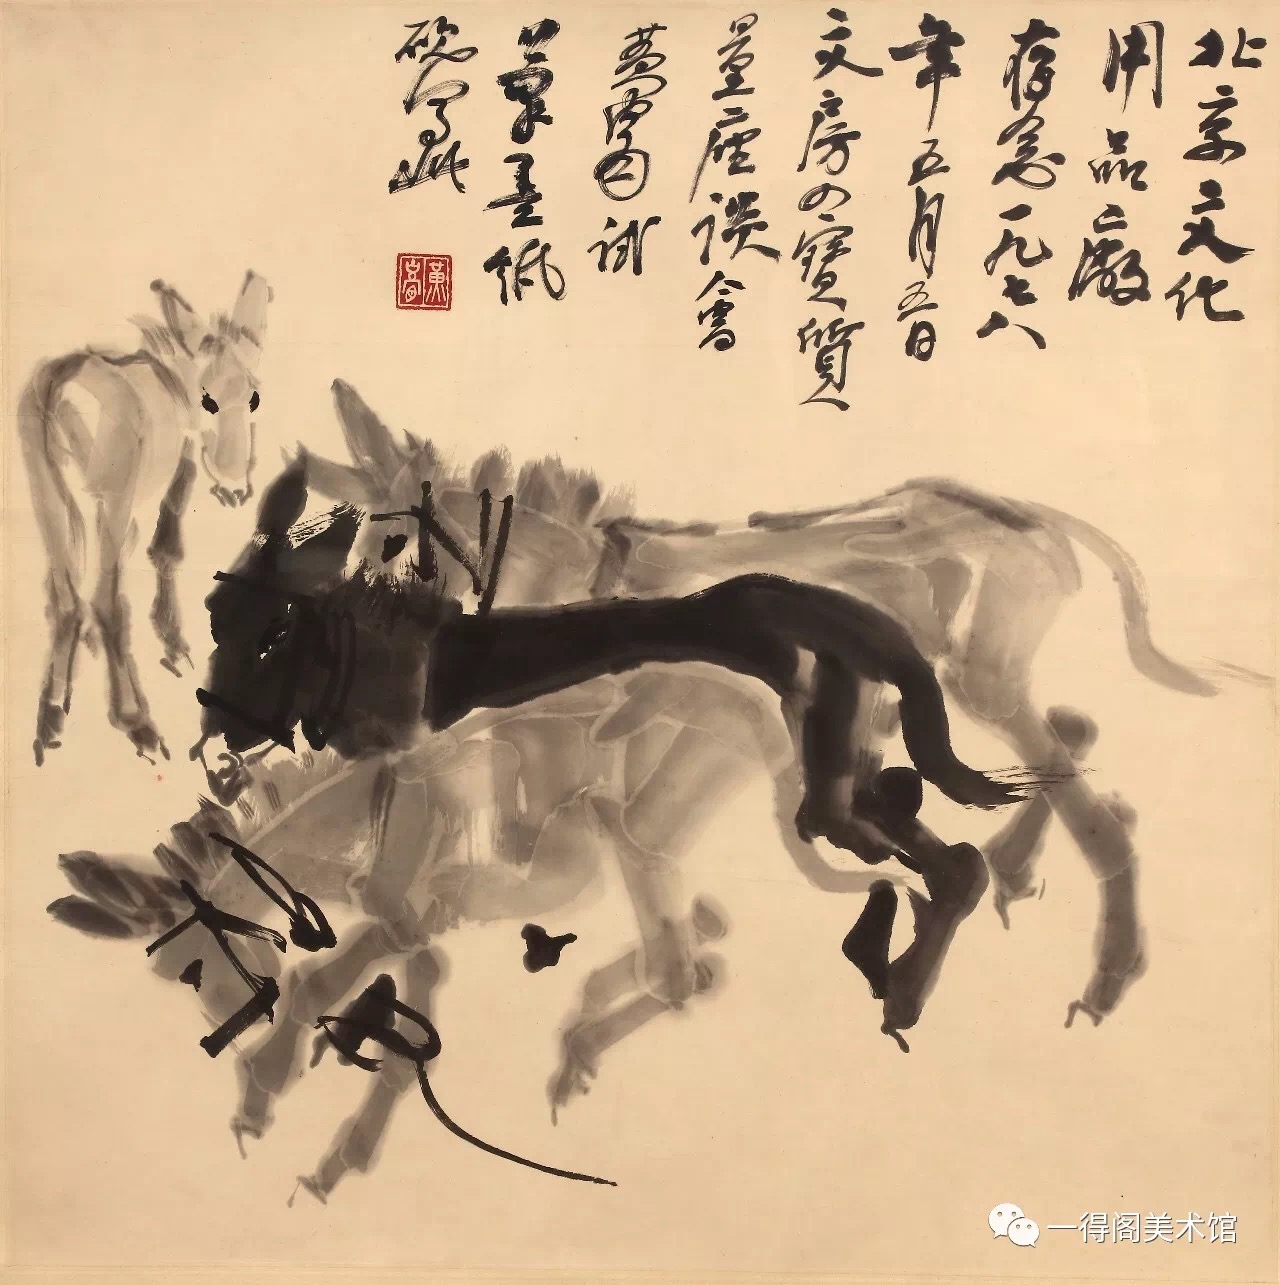 北京文化
用品厰
存念一九七八
年五月五日
文房四寶質
量座談會
黄胄試
筆墨紙
硯寫此
黄胄
一得阁美术馆